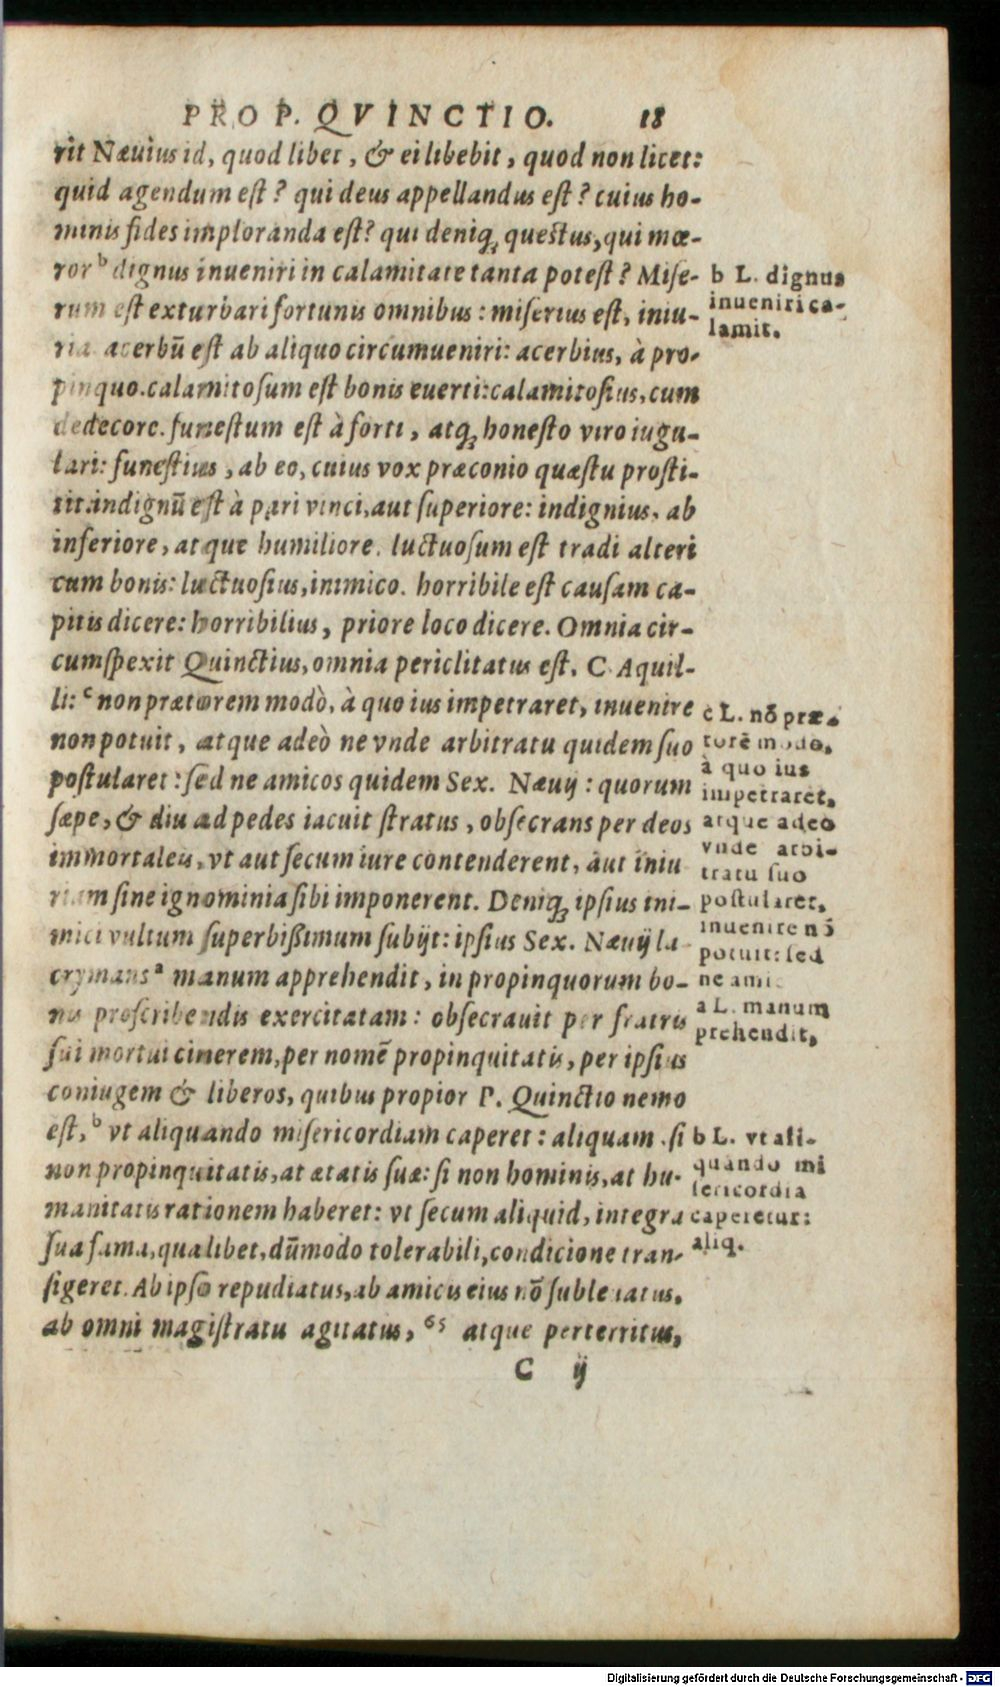 PRO P. QVINCTIO. 18
rit Næuius id, quod libet, & ei libebit, quod non licet:
quid agendum eſt? qui deus appellandus eſt? cuius ho-
minis fides imploranda eſt? qui deniq; queſtus, qui mœ-
ror ᵇ dignus inueniri in calamitate tanta poteſt? Miſe-
rum eſt exturbari fortunis omnibus: miſerius eſt, iniu-
ria. acerbũ eſt ab aliquo circumueniri: acerbius, à pro-
pinquo. calamitoſum eſt bonis euerti: calamitoſius, cum
dedecore. funeſtum eſt à forti, atq; honeſto viro iugu-
lari: funeſtius, ab eo, cuius vox præconio quæſtu proſti-
tit. indignũ eſt à pari vinci, aut ſuperiore: indignius, ab
inferiore, atque humiliore. luctuoſum eſt tradi alteri
cum bonis: luctuoſius, inimico. horribile eſt cauſam ca-
pitis dicere: horribilius, priore loco dicere. Omnia cir-
cumſpexit Quinctius, omnia periclitatus eſt, C. Aquil-
li: ᶜ non prætorem modò, à quo ius impetraret, inuenire
non potuit, atque adeò ne vnde arbitratu quidem ſuo
poſtularet: ſed ne amicos quidem Sex. Næuij: quorum
ſæpe, & diu ad pedes iacuit ſtratus, obſecrans per deos
immortaleis, vt aut ſecum iure contenderent, aut iniu
riam ſine ignominia ſibi imponerent. Deniq; ipſius ini-
mici vultum ſuperbißimum ſubijt: ipſius Sex. Næuij la
crymans ᵃ manum apprehendit, in propinquorum bo-
nis proſcribendis exercitatam: obſecrauit per fratris
ſui mortui cinerem, per nomẽ propinquitatis, per ipſius
coniugem & liberos, quibus propior P. Quinctio nemo
eſt, ᵇ vt aliquando miſericordiam caperet: aliquam, ſi
non propinquitatis, at ætatis ſuæ: ſi non hominis, at hu-
manitatis rationem haberet: vt ſecum aliquid, integra
ſua fama, qualibet, dũmodo tolerabili, condicione tran-
ſigeret. Ab ipſo repudiatus, ab amicis eius nõ ſubleuatus,
ab omni magiſtratu agitatus, ⁶⁵ atque perterritus,
C ij
b L. dignus
inueniri ca-
lamit.
c L. nõ præ-
torẽ modo,
à quo ius
impetraret,
atque adeo
vnde arbi-
tratu ſuo
poſtularet,
inuenire nõ
potuit: ſed
ne amic
a L. manum
prehendit,
b L. vt ali-
quando mi
ſericordia
caperetur:
aliq.
Digitalisierung gefördert durch die Deutsche Forschungsgemeinschaft - DFG